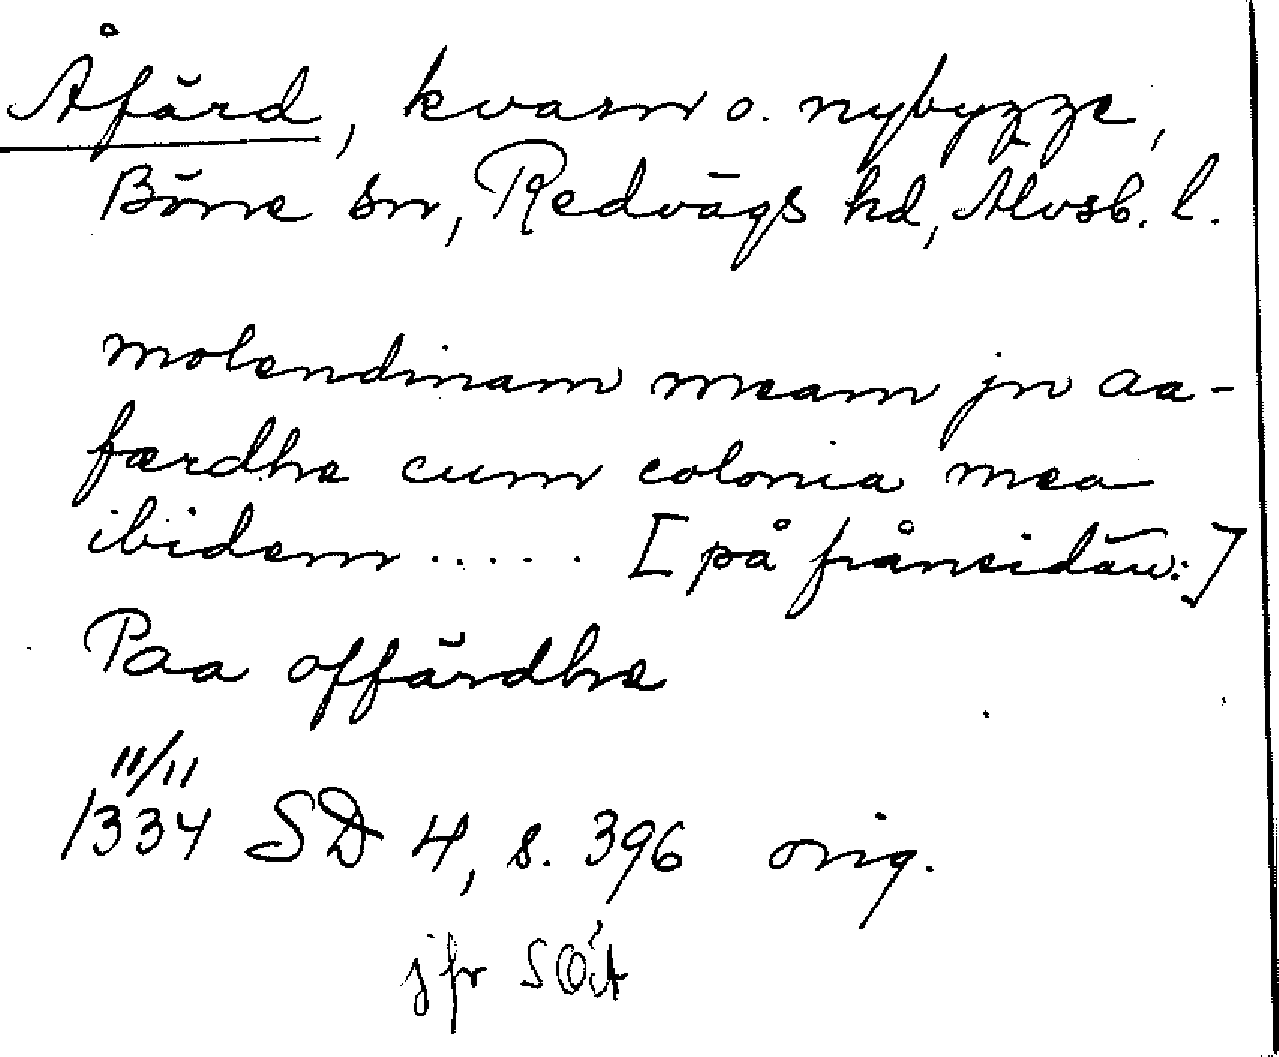 Åfärd, kvarn o. nybygge,
Böne sn, Redvägs hd, Älvsb. l.
molendinam meam jn aa-
færdhe cum colonia mea
ibidem ..... [på frånsidan:]
Paa offärdhe
11/11
1334 SD 4, s. 396 orig.
jfr SOÄ